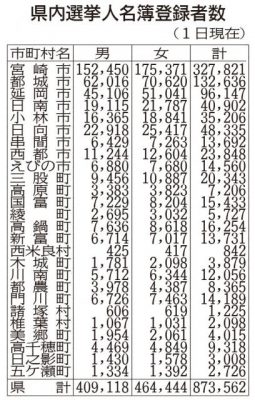 県内選挙人名簿登録者数
（1日現在）
市町村名 男 女 計
宮崎市 152,450 175,371 327,821
都城市 62,016 70,620 132,636
延岡市 45,106 51,041 96,147
日南市 19,115 21,787 40,902
小林市 16,365 18,841 35,206
日向市 22,918 25,417 48,335
串間市 6,429 7,263 13,692
西都市 11,244 12,604 23,848
えびの市 6,880 7,680 14,560
三股町 9,456 10,887 20,343
高原町 3,383 3,823 7,206
国富町 7,229 8,204 15,433
綾町 2,695 3,032 5,727
高鍋町 7,636 8,618 16,254
新富町 6,714 7,017 13,731
西米良村 425 417 842
木城町 1,781 2,098 3,879
川南町 5,712 6,344 12,056
都農町 3,978 4,387 8,365
門川町 6,726 7,463 14,189
諸塚村 606 619 1,225
椎葉村 1,067 1,031 2,098
美郷町 1,954 2,061 4,015
高千穂町 4,469 4,849 9,318
日之影町 1,430 1,578 3,008
五ケ瀬町 1,334 1,392 2,726
県計 409,118 464,444 873,562